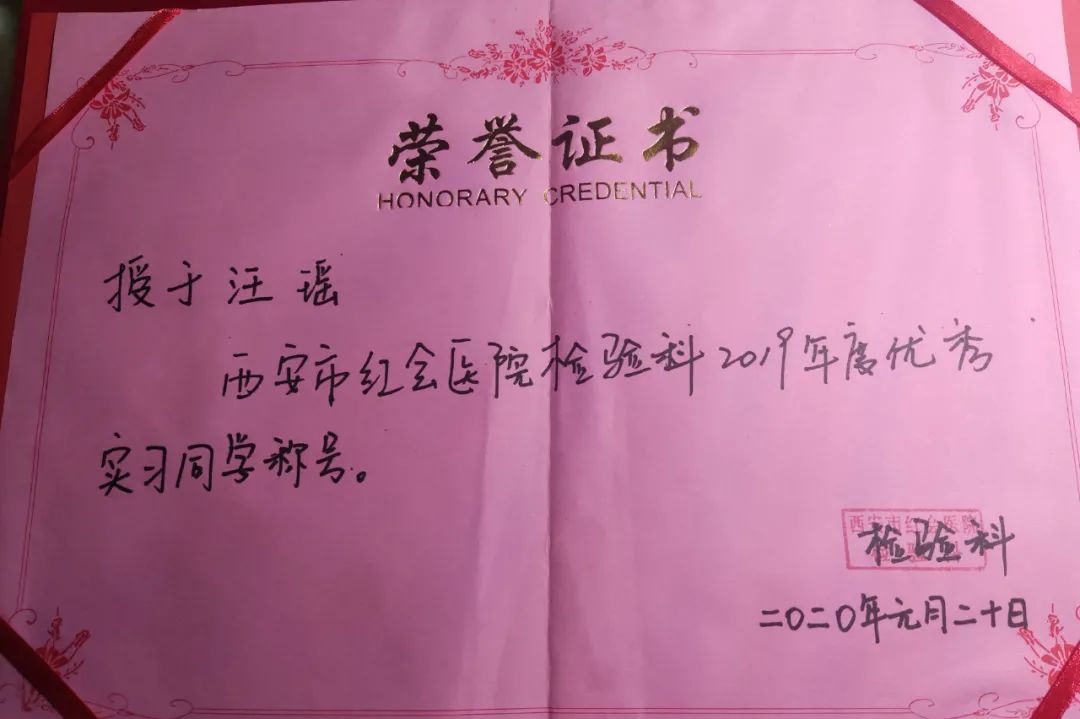 荣誉证书
HONORARY CREDENTIAL
授于汪瑶
西安市红会医院检验科2019年度优秀
实习同学称号。
西安市红会医院
检验科
二〇二〇年元月二十日